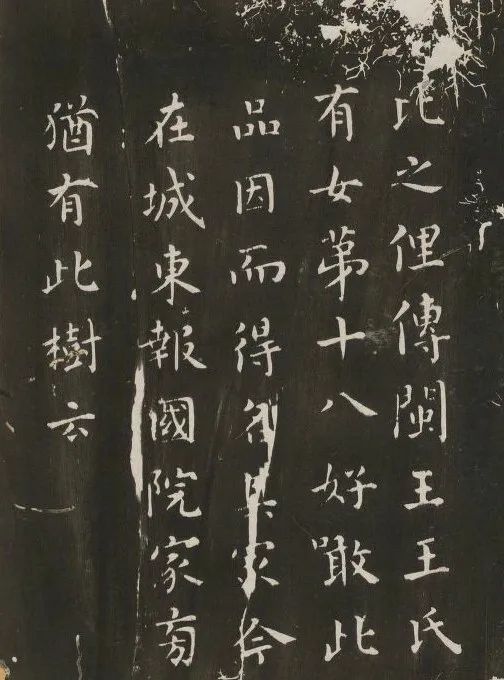 比之俚傳閩王王氏
有女第十八好噉此
品因而得名其冢今
在城東報國院冢旁
猶有此樹云